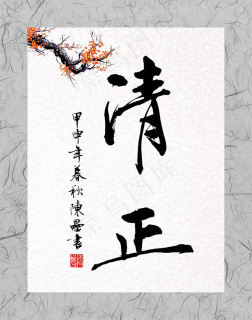 清正
甲申年春秋陳墨書